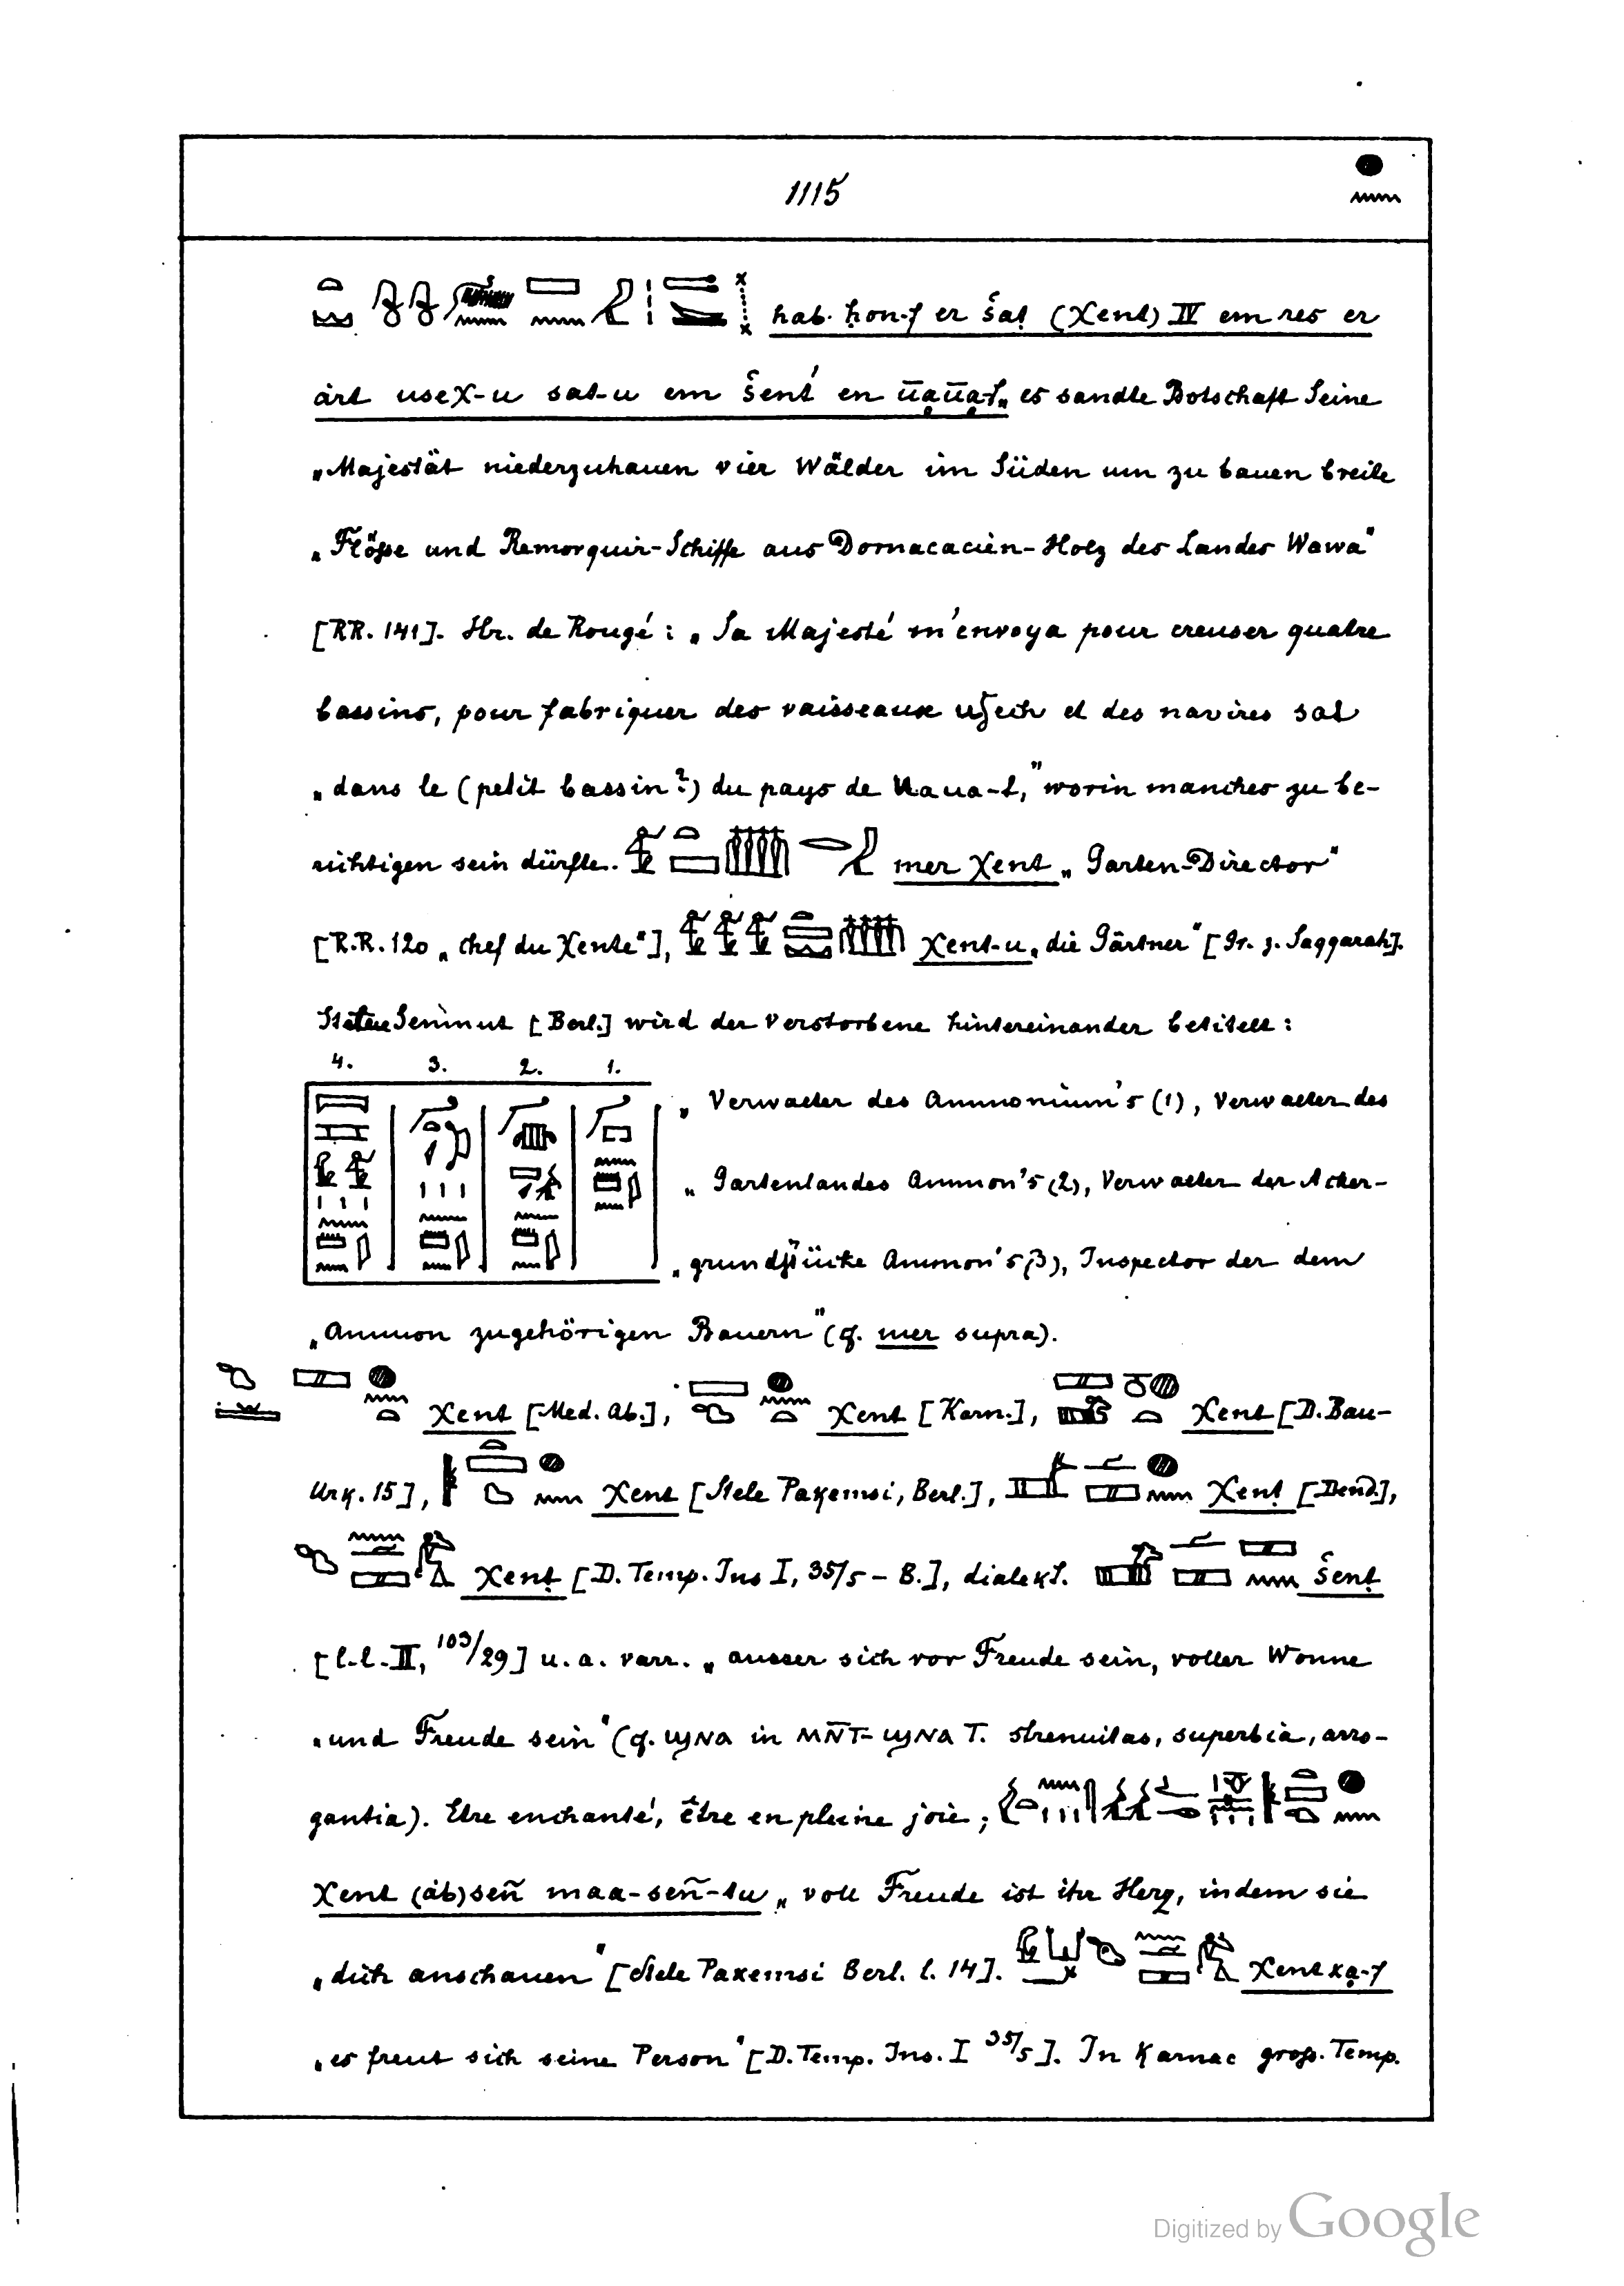 1115
hab. ḥon-f er šaṭ (χent) IV em res er
árt useχ-u sat-u em šent́ en ūạūạ-t „es sandte Botschaft Seine
„Majestät niederzuhauen vier Wälder im Süden um zu bauen breite
„Flösse und Remorquir-Schiffe aus Dornacacien-Holz des Landes Wawa“
[RR. 141]. Hr. de Rougé: „Sa Majesté m'envoya pour creuser quatre
bassins, pour fabriquer des vaisseaux usech et des navires sat
„dans le (petit bassin?) du pays de Uaua-t,“ worin manches zu be-
richtigen sein dürfte. mer χent „Garten-Director“
[R.R. 120 „chef du χente“], χent-u „die Gärtner“ [Gr. z. Saqqarah].
Statue Senmut [Berl.] wird der Verstorbene hintereinander betitelt:
4. 3. 2. 1.
„Verwalter des Ammonium's (1), Verwalter des
„Gartenlandes Ammon's (2), Verwalter der Acker-
„grundstücke Ammon's (3), Inspector der dem
„Ammon zugehörigen Bauern“ (cf. mer supra).
χent [Med. Ab.], χent [Karn.], χent [D. Bau-
Urk. 15], χent [Stele Pakemsi, Berl.], χenṭ [Dend.],
χenṭ [D. Temp. Ins I, 35/5 – B.], dialekt. šenṭ
[l.l. II, 103/29] u. a. varr. „ausser sich vor Freude sein, voller Wonne
„und Freude sein“ (cf. ϣⲛⲁ in ⲙⲛ̄ⲧ-ϣⲛⲁ T. strenuitas, superbia, arro-
gantia). Etre enchanté, être en pleine joie;
χent (áb) señ maa-señ-tu „voll Freude ist ihr Herz, indem sie
„dich anschauen“ [Stele Pakemsi Berl. l. 14]. χenṭ kạ-f
„es freut sich seine Person“ [D. Temp. Ins. I 35/5]. In Karnac gross. Temp.
Digitized by Google